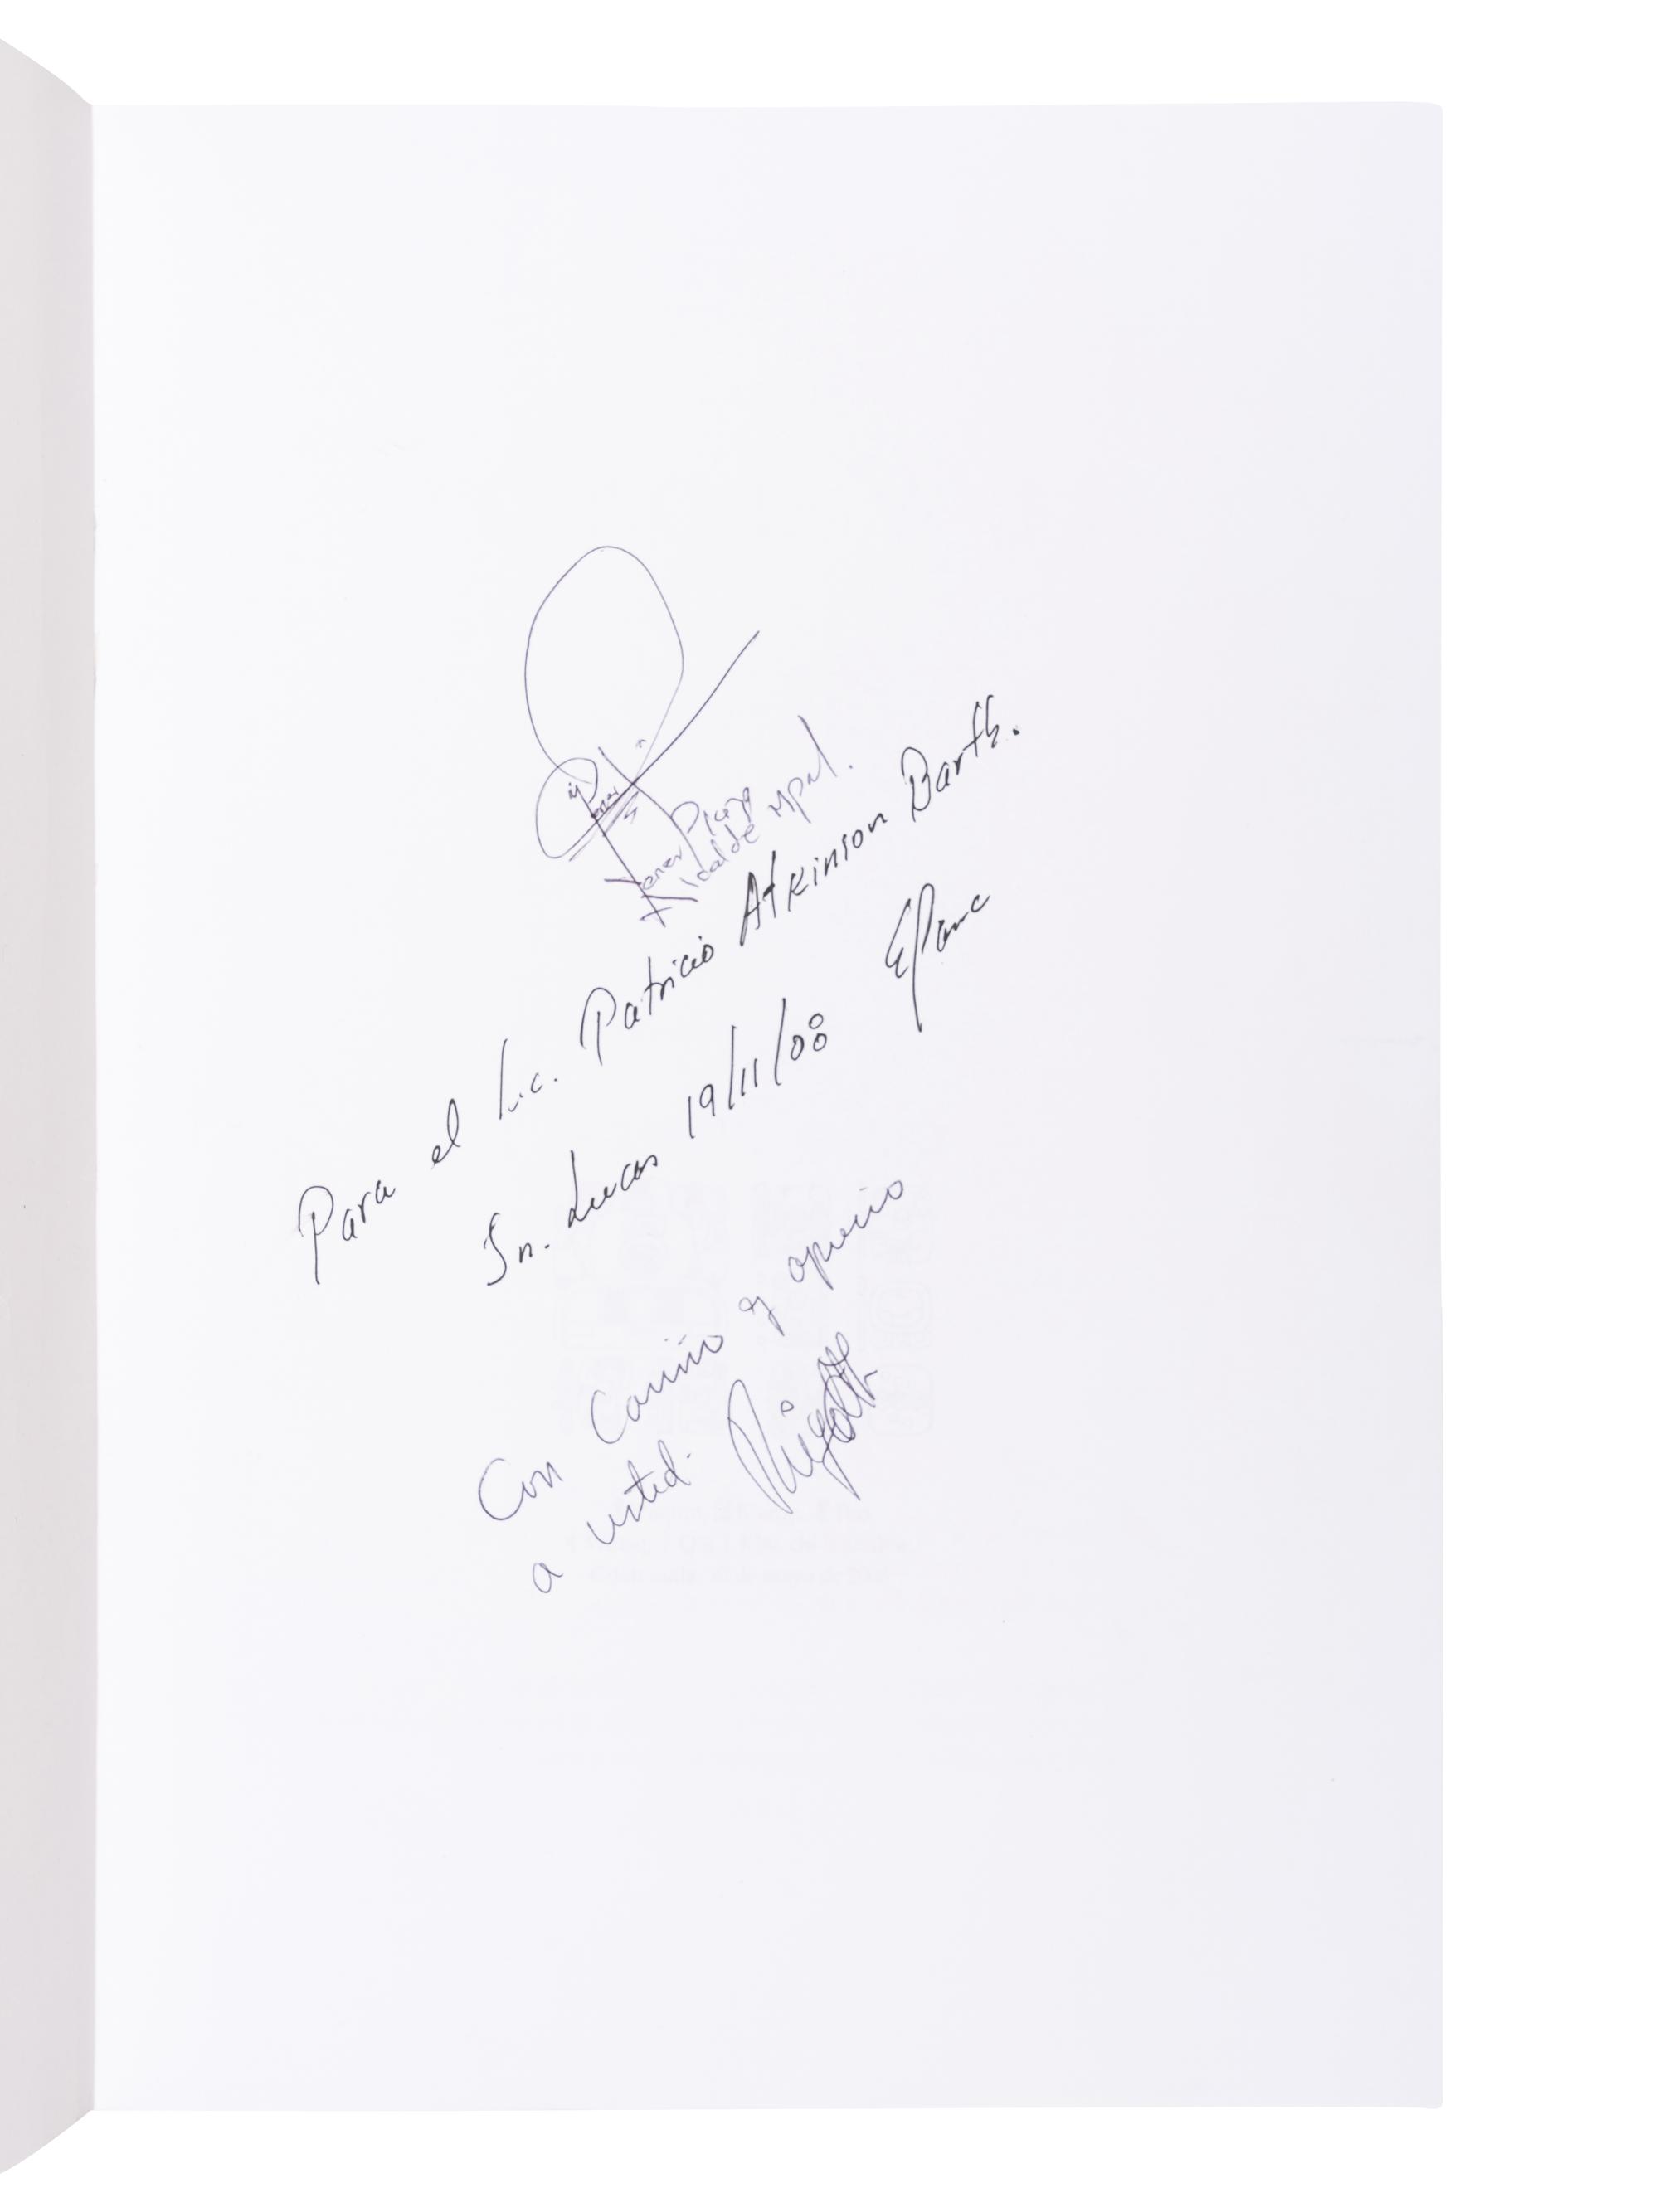 Yener Plaza
Alcalde Mpal.
Para el Lic. Patricio Atkinson Barth.
Sn. Lucas 19/11/08
Con Cariño y aprecio
a usted.